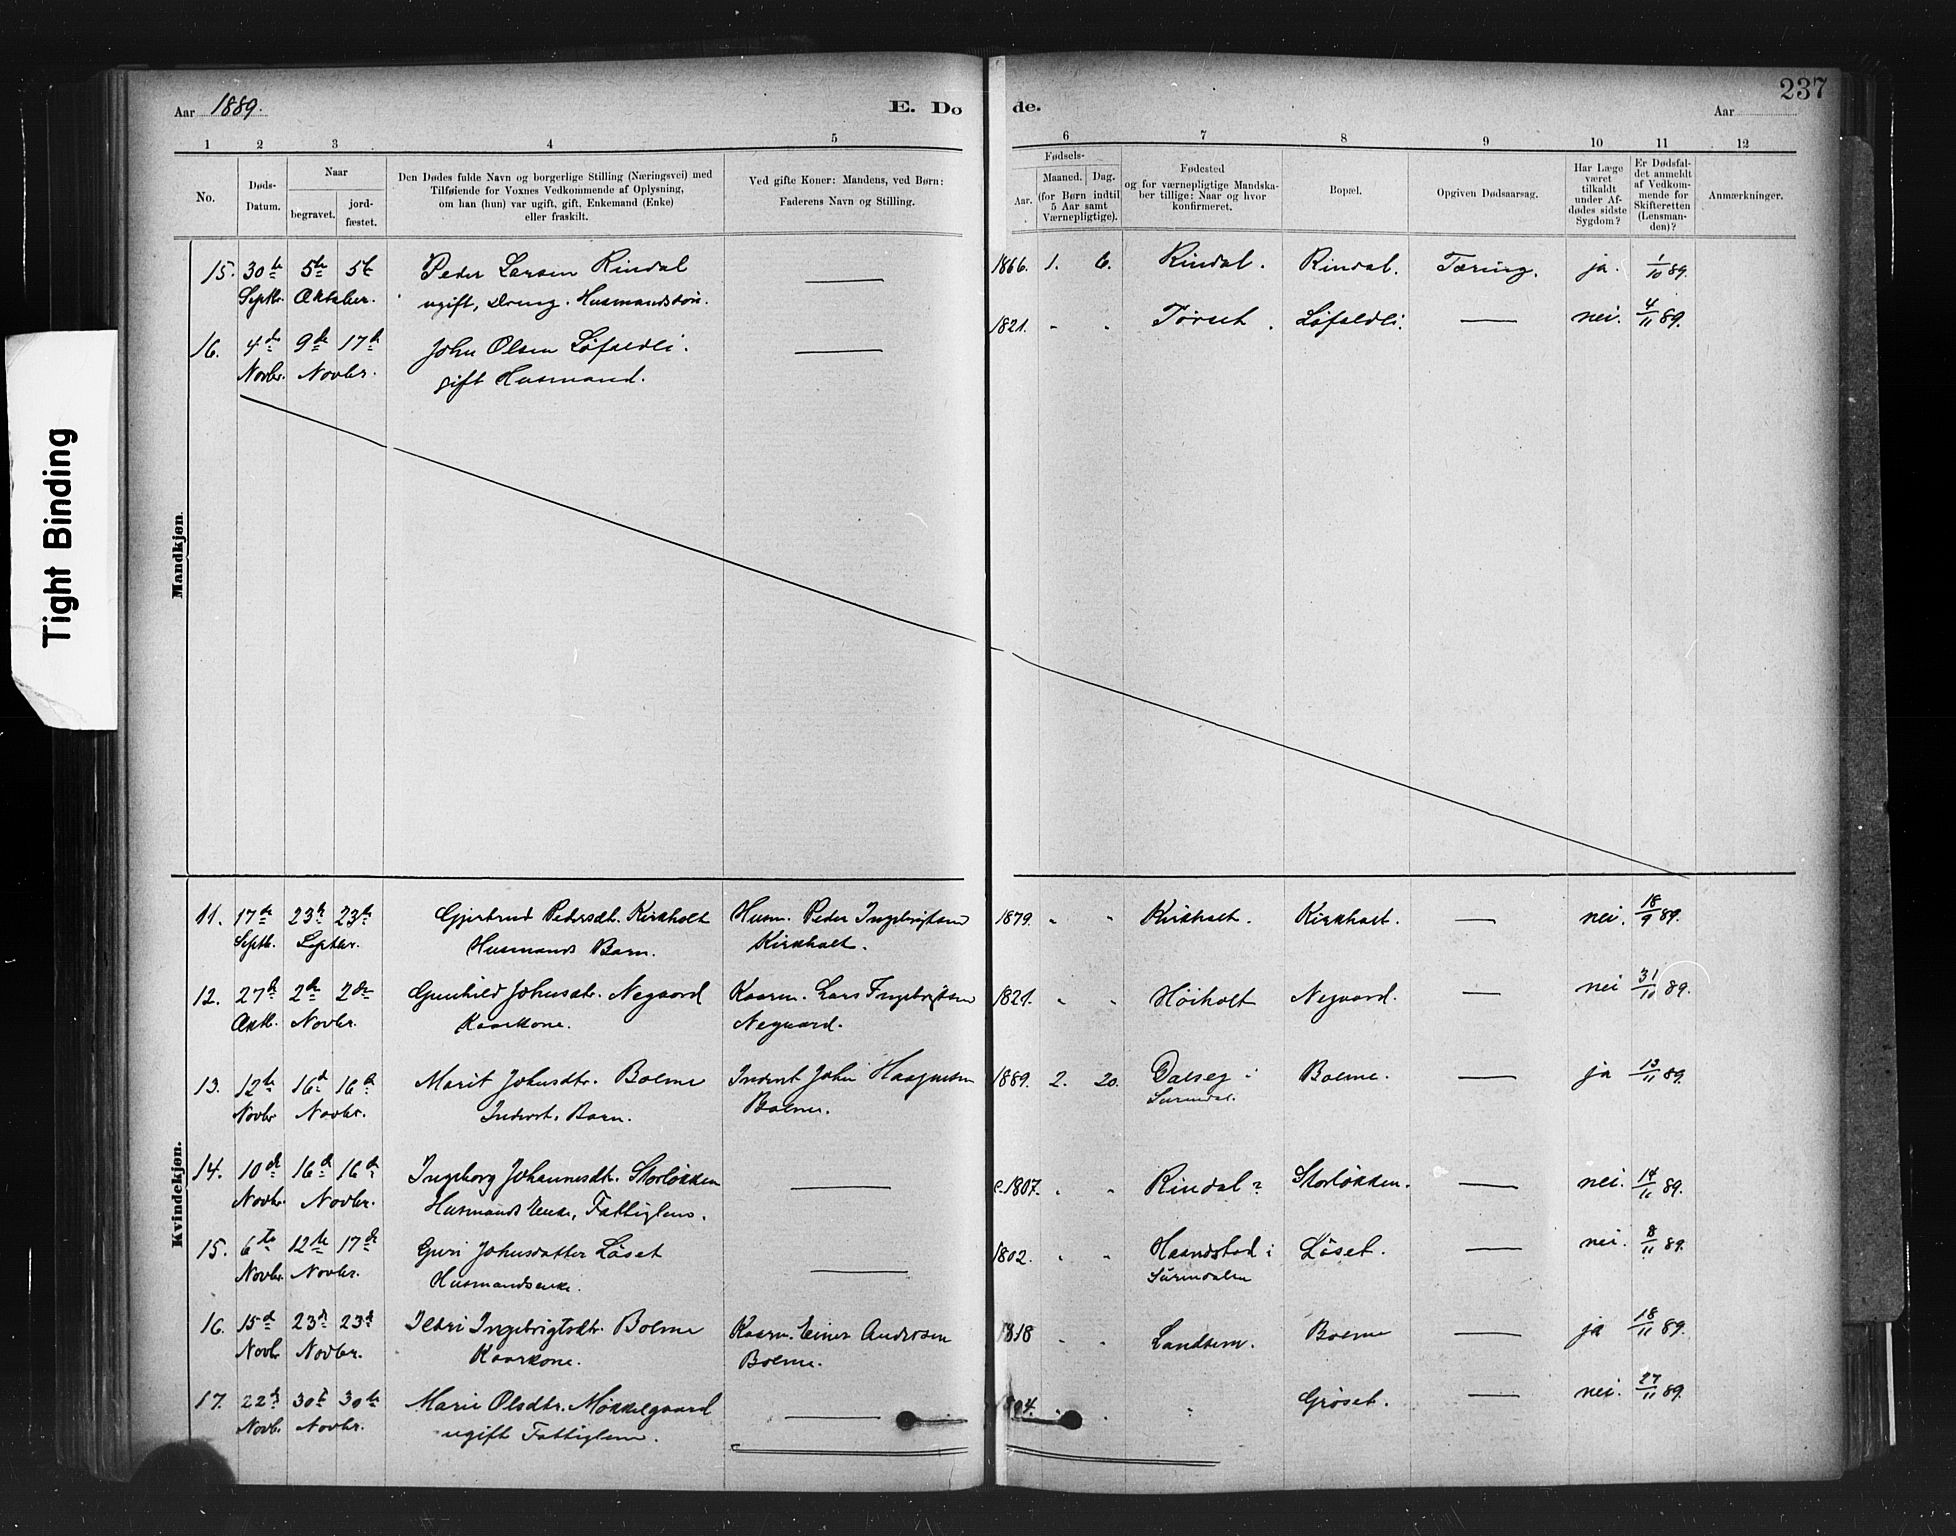 Tight Binding
Aar 1889.
E. Dø
de.
Aar
237
1 2 3 4 5 6 7 8 9 10 11 12
No.
Døds-
Datum.
Naar
begravet.
jord-
fæstet.
Den Dødes fulde Navn og borgerlige Stilling (Næringsvei) med
Tilføiende for Voxnes Vedkommende af Oplysning,
om han (hun) var ugift, gift, Enkemand (Enke)
eller fraskilt.
Ved gifte Koner: Mandens, ved Børn:
Faderens Navn og Stilling.
Fødsels-
Aar.
Maaned. Dag.
(for Børn indtil
5 Aar samt
Værnepligtige).
Fødested
og for værnepligtige Mandska-
ber tillige: Naar og hvor
konfirmeret.
Bopæl.
Opgiven Dødsaarsag.
Har Læge
været
tilkaldt
under Af-
dødes sidste
Sygdom?
Er Dødsfal-
det anmeldt
af Vedkom-
mende for
Skifteretten
(Lensman-
den)?
Anmærkninger.
Mandkjøn.
15. 30te 5te 5te Peder Larsen Rindal — 1866. 1. 6. Rindal. Rindal. Tæring. ja. 1/10 89.
Septbr. Oktober. ugift, Dreng. Husmandssøn.
16. 4de 9de 17de John Olsen Løfaldli. — 1821. " " Tørset. Løfaldli. — nei. 4/11 89.
Novbr. Novbr. gift Husmand.
Kvindekjøn.
11. 17de 23de 23de Gjertrud Pedersdt. Kirkholt Husm. Peder Ingebrigtsen 1879. " " Kirkholt. Kirkholt. — nei. 18/9 89.
Septb. Septbr. Husmands Barn. Kirkholt.
12. 27de 2den 2den Gunhild Johnsdtr. Negaard Kaarm. Lars Ingebrigtsen 1821. " " Høiholt Negaard. — nei 31/10 89.
Oktb. Novbr. Kaarkone. Negaard.
13. 12te 16de 16de Marit Johnsdtr. Bolme Inderst John Haagensen 1889. 2. 20. Dalseg i Bolme. — ja 13/11 89.
Novbr Novbr. Inderst. Barn. Bolme. Surendal.
14. 10de 16de 16de Ingeborg Johannesdtr. Storløkken — c.1807. " " Rindal? Storløkken. — nei. 14/11 89.
Novbr. Novbr. Husmands Enke, Fattiglem.
15. 6te 12te 17de Guri Johnsdatter Løset — 1802. " " Haandstad i Løset. — nei. 8/11 89.
Novbr. Novbr. Husmandsenke. Surendalen
16. 15de 23de 23de Ingebrigtsdtr. Bolme Kaarm. Einer Andersen 1818 " " Landsem. Bolme — ja 18/11 89.
Novb. Novbr. Kaarkone. Bolme.
17. 22de 30te 30te Marie Olsdtr. Mokkelgaard — 1804. " " " Grøset. — nei. 27/11 89.
Novb. Novbr. ugift Fattiglem.